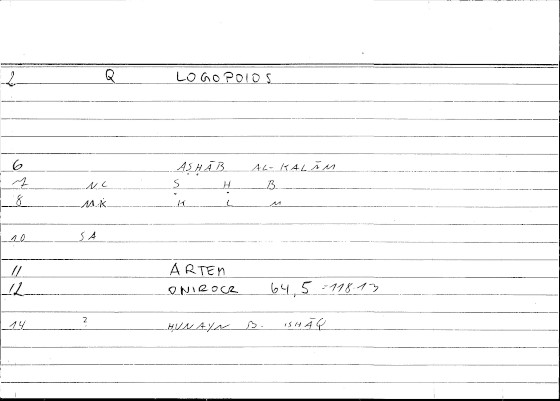 2 Q LOGOPOIOS
6 AṢḤĀB AL-KALĀM
7 NC Ṣ Ḥ B
8 MK K L M
10 SA
11 ARTEM
12 ONIROCR 64,5 = 118 13
14 ? HUNAYN B. ISHĀQ